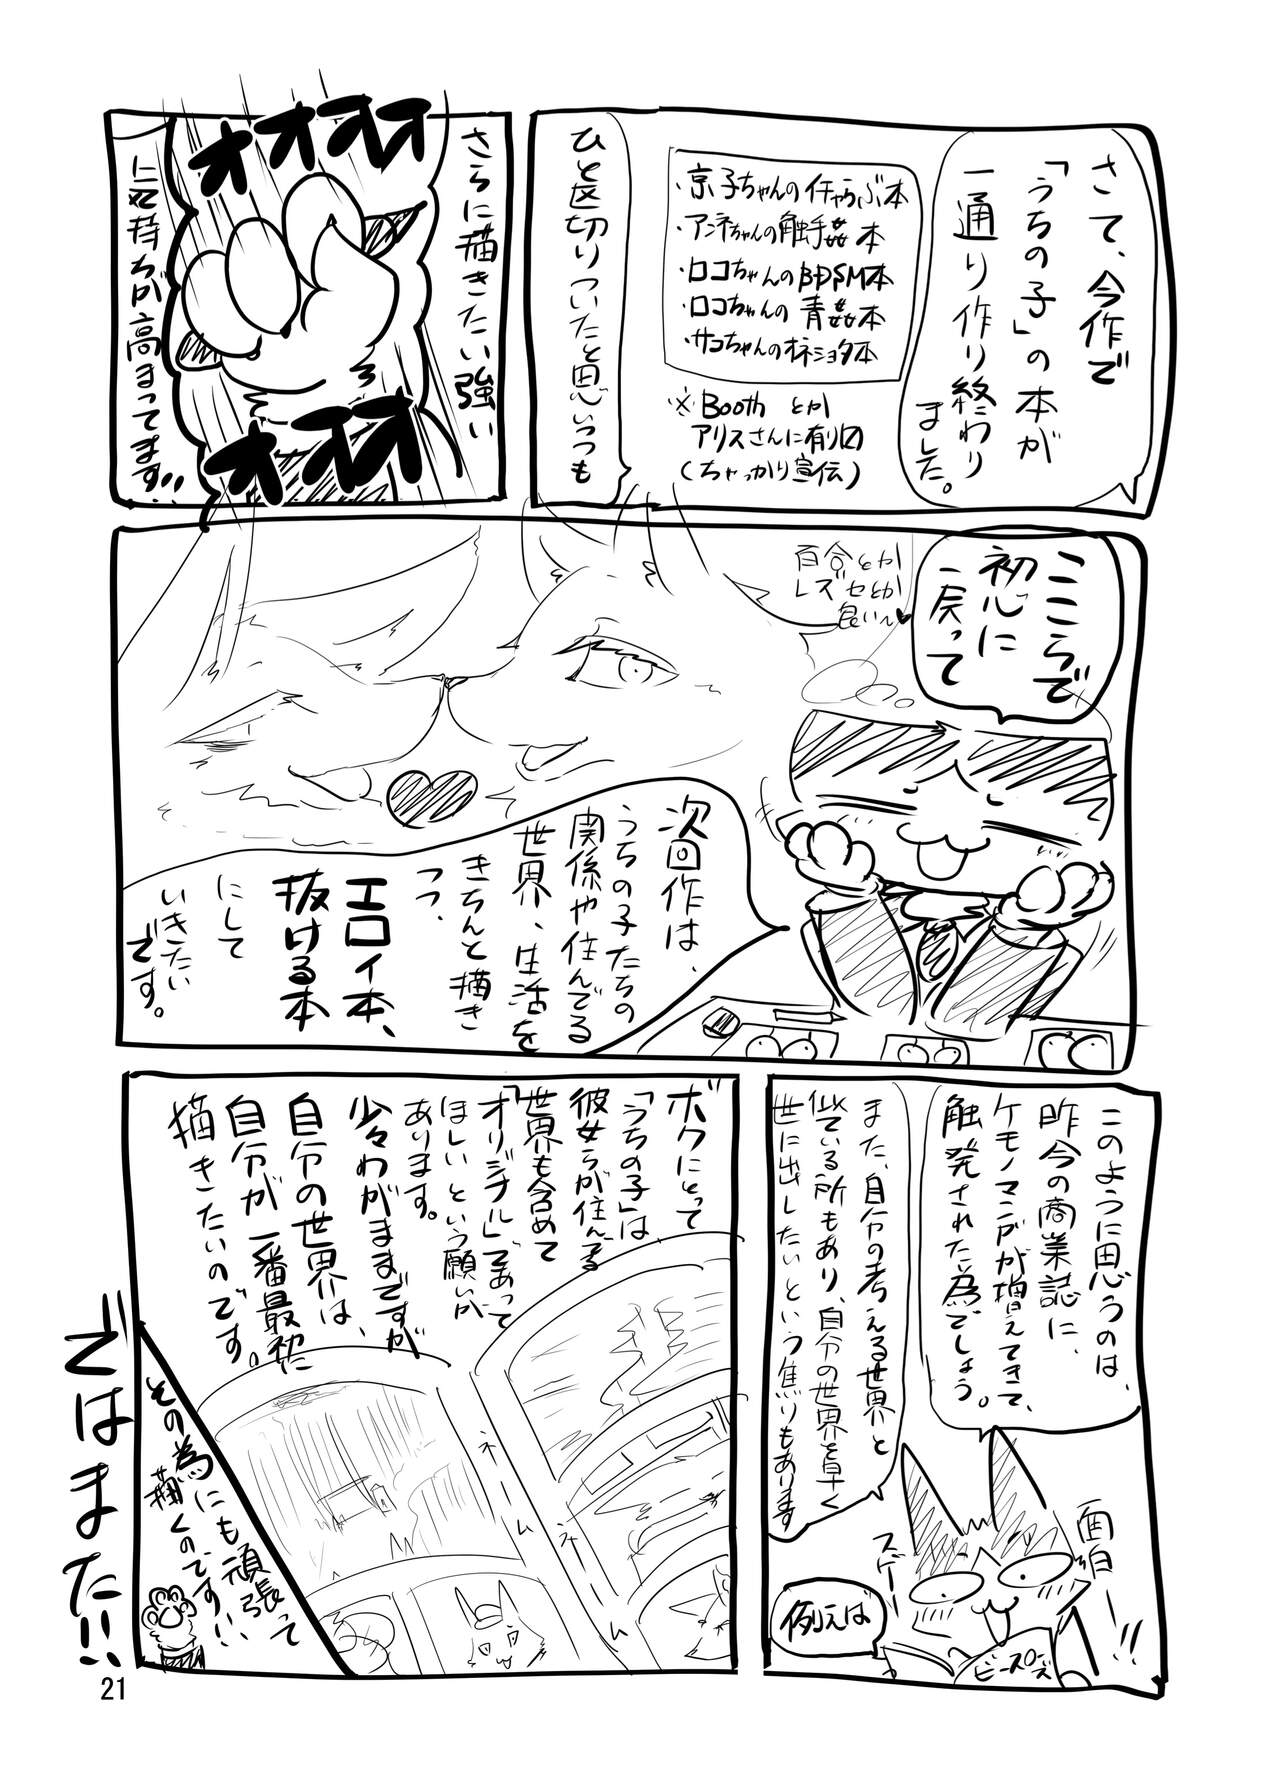 さて、今作で
「うちの子」の本が
一通り作り終わり
ました。
・京子ちゃんのイチャらぶ本
・アンネちゃんの触手姦本
・ロコちゃんのBDSM本
・ロコちゃんの青姦本
・サコちゃんのオネショタ本
※Boothとか
アリスさんに有り〼
(ちゃっかり宣伝)
ひと区切りついたと思いつつも
さらに描きたい強い
気持ちが高まってます!!
オオオオ
オオオオ
ここらで
初心に
戻って
百合とか
レズセとか
良い〜♥
次回作は、
うちの子たちの
関係や住んでる
世界、生活を
きちんと描き
つつ、
エロイ本、
抜ける本
にして
いきたい
です。
このように思うのは、
昨今の商業誌に、
ケモノマンガが増えてきて、
触発された為でしょう。
また、自分の考える世界と
似ている所もあり、自分の世界を早く
世に出したいという焦りもあります
面白ー!!
スゲー
ビースターズ
例えば
ボクにとって
「うちの子」は
彼女らが住んでる
世界も含めて
「オリジナル」であって
ほしいという願いが
あります。
少々わがままですが
自分の世界は、
自分が一番最初に
描きたいのです。
ネム
ネム
その為にも頑張って
描くのです!!
ではまた!!
21